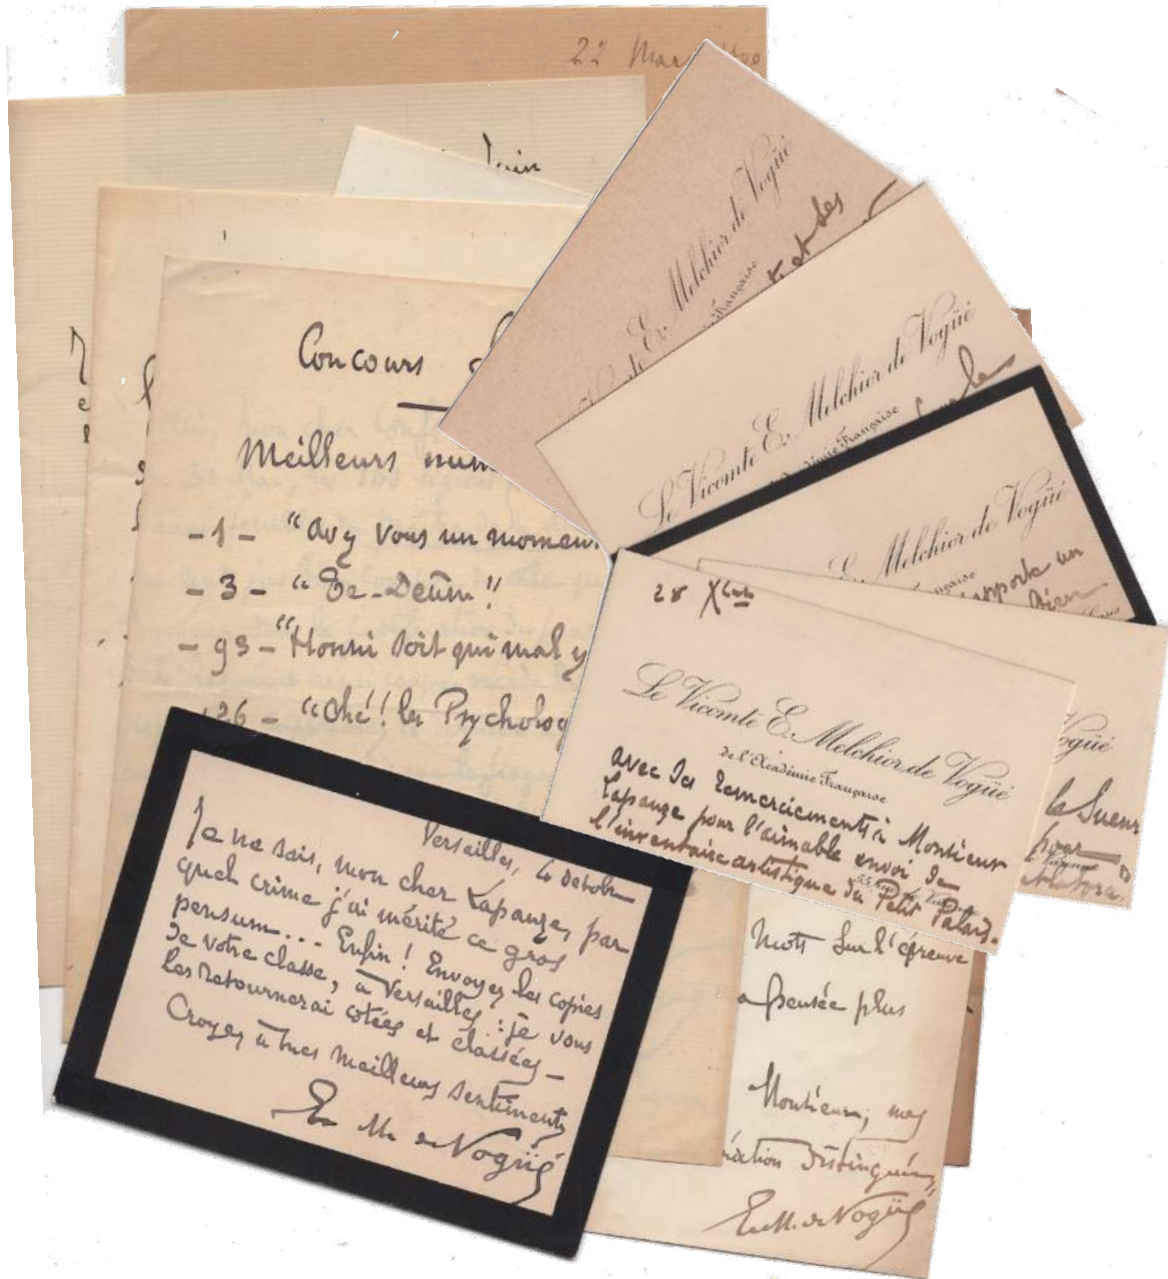 22 Mars
Juin
Concours
Meilleurs num
- 1 - "Avez vous un momen
- 3 - "Te-Deum!"
- 93 - "Honni soit qui mal y
126 - "Ohé!! les Psycholog
E. Melchior de Vogüé
Française
et ses
Le Vicomte E. Melchior de Vogüé
Française
E. Melchior de Vogüé
Française
apporte un
bien
28 Xbre
Le Vicomte E. Melchior de Vogüé
de l'Académie Française
avec ses remerciements à Monsieur
Lapauze pour l'aimable envoi de
l'inventaire artistique du Petit Palais.
ogüé
la Sueur
pour
Versailles, 4 octobre
Je ne sais, mon cher Lapauze, par
quel crime j'ai mérité ce gros
pensum... Enfin! Envoyez les copies
de votre classe, à Versailles: je vous
les retournerai cotées et classées —
Croyez à mes meilleurs sentiments
E. M. de Vogüé
mots sur l'épreuve
a pensée plus
Monsieur, mes
ération distinguée,
E. M. de Vogüé